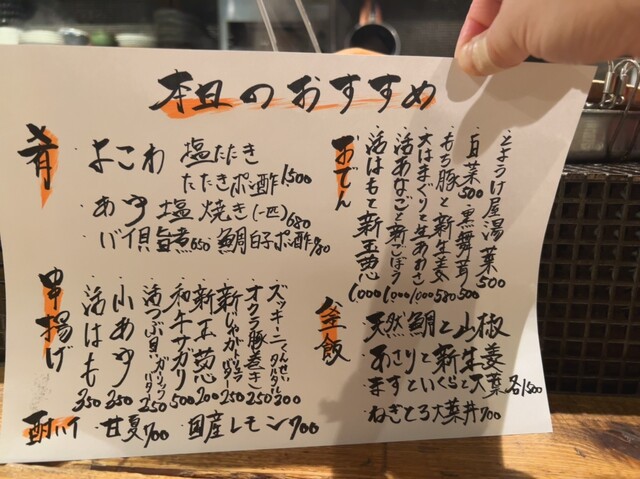 本日のおすすめ
肴
・よこわ 塩たたき
たたきポン酢 1,500
・あゆ塩焼き(一匹) 680
・バイ貝旨煮 650 ・鯛白子ポン酢 780
おでん
・とようけ屋湯葉 500
・白菜 500 ・黒舞茸 500
・もち豚と新生姜 580
・大はまぐりと生あおさ 1,000
・活あなごと新ごぼう 1,000
・活はもと新玉葱 1,000
串揚げ
・ズッキーニ くんせいタルタル 200
・オクラ豚巻き 250
・新じゃが 250
・新玉葱 200
・和牛サガリ 500
・活つぶ貝 ガーリックバター 250
・小あゆ 350
・活はも 350
釜飯
・天然鯛と山椒
・あさりと新生姜
・ますといくらと大葉 各1,500
・ねぎとろ大葉丼 700
酎ハイ ・甘夏 700 ・国産レモン 700